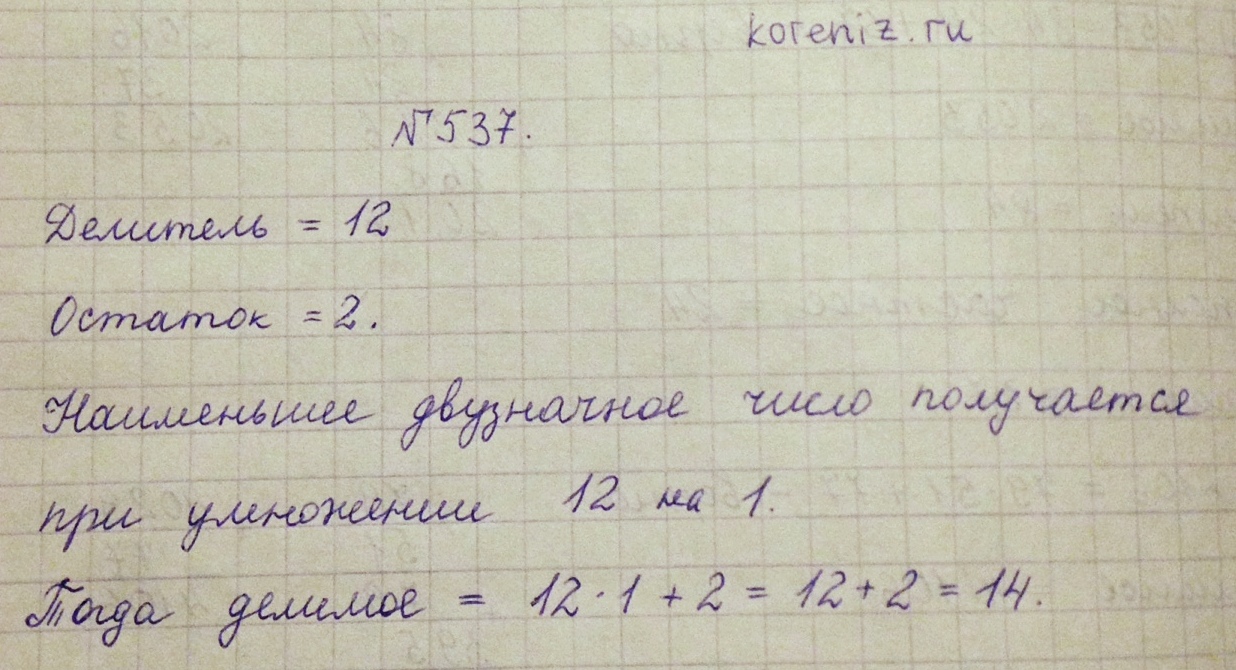 koreniz.ru
№537.
Делитель = 12
Остаток = 2.
Наименьшее двузначное число получается
при умножении 12 на 1.
Тогда делимое = 12·1 + 2 = 12+2 = 14.